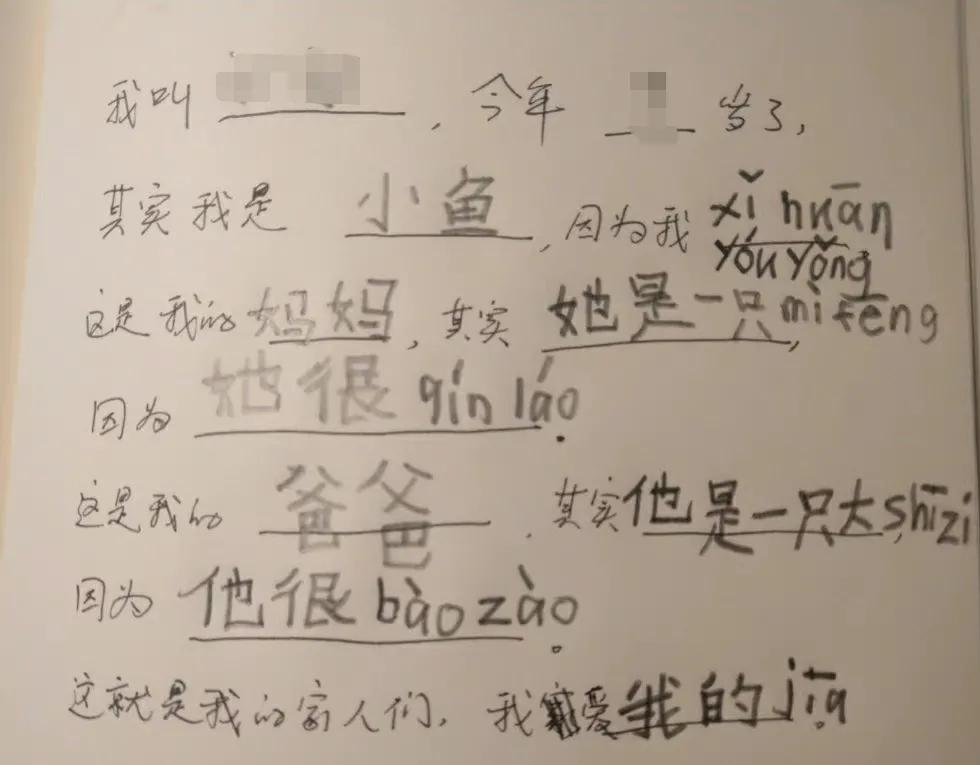 我叫，今年岁了，
其实我是小鱼，因为我xǐ huān
yóu yǒng
这是我的妈妈，其实她是一只mì fēng，
因为她很qín láo。
这是我的爸爸，其实他是一只大shī zi，
因为他很bào zào。
这就是我的家人们，我爱我的jiā